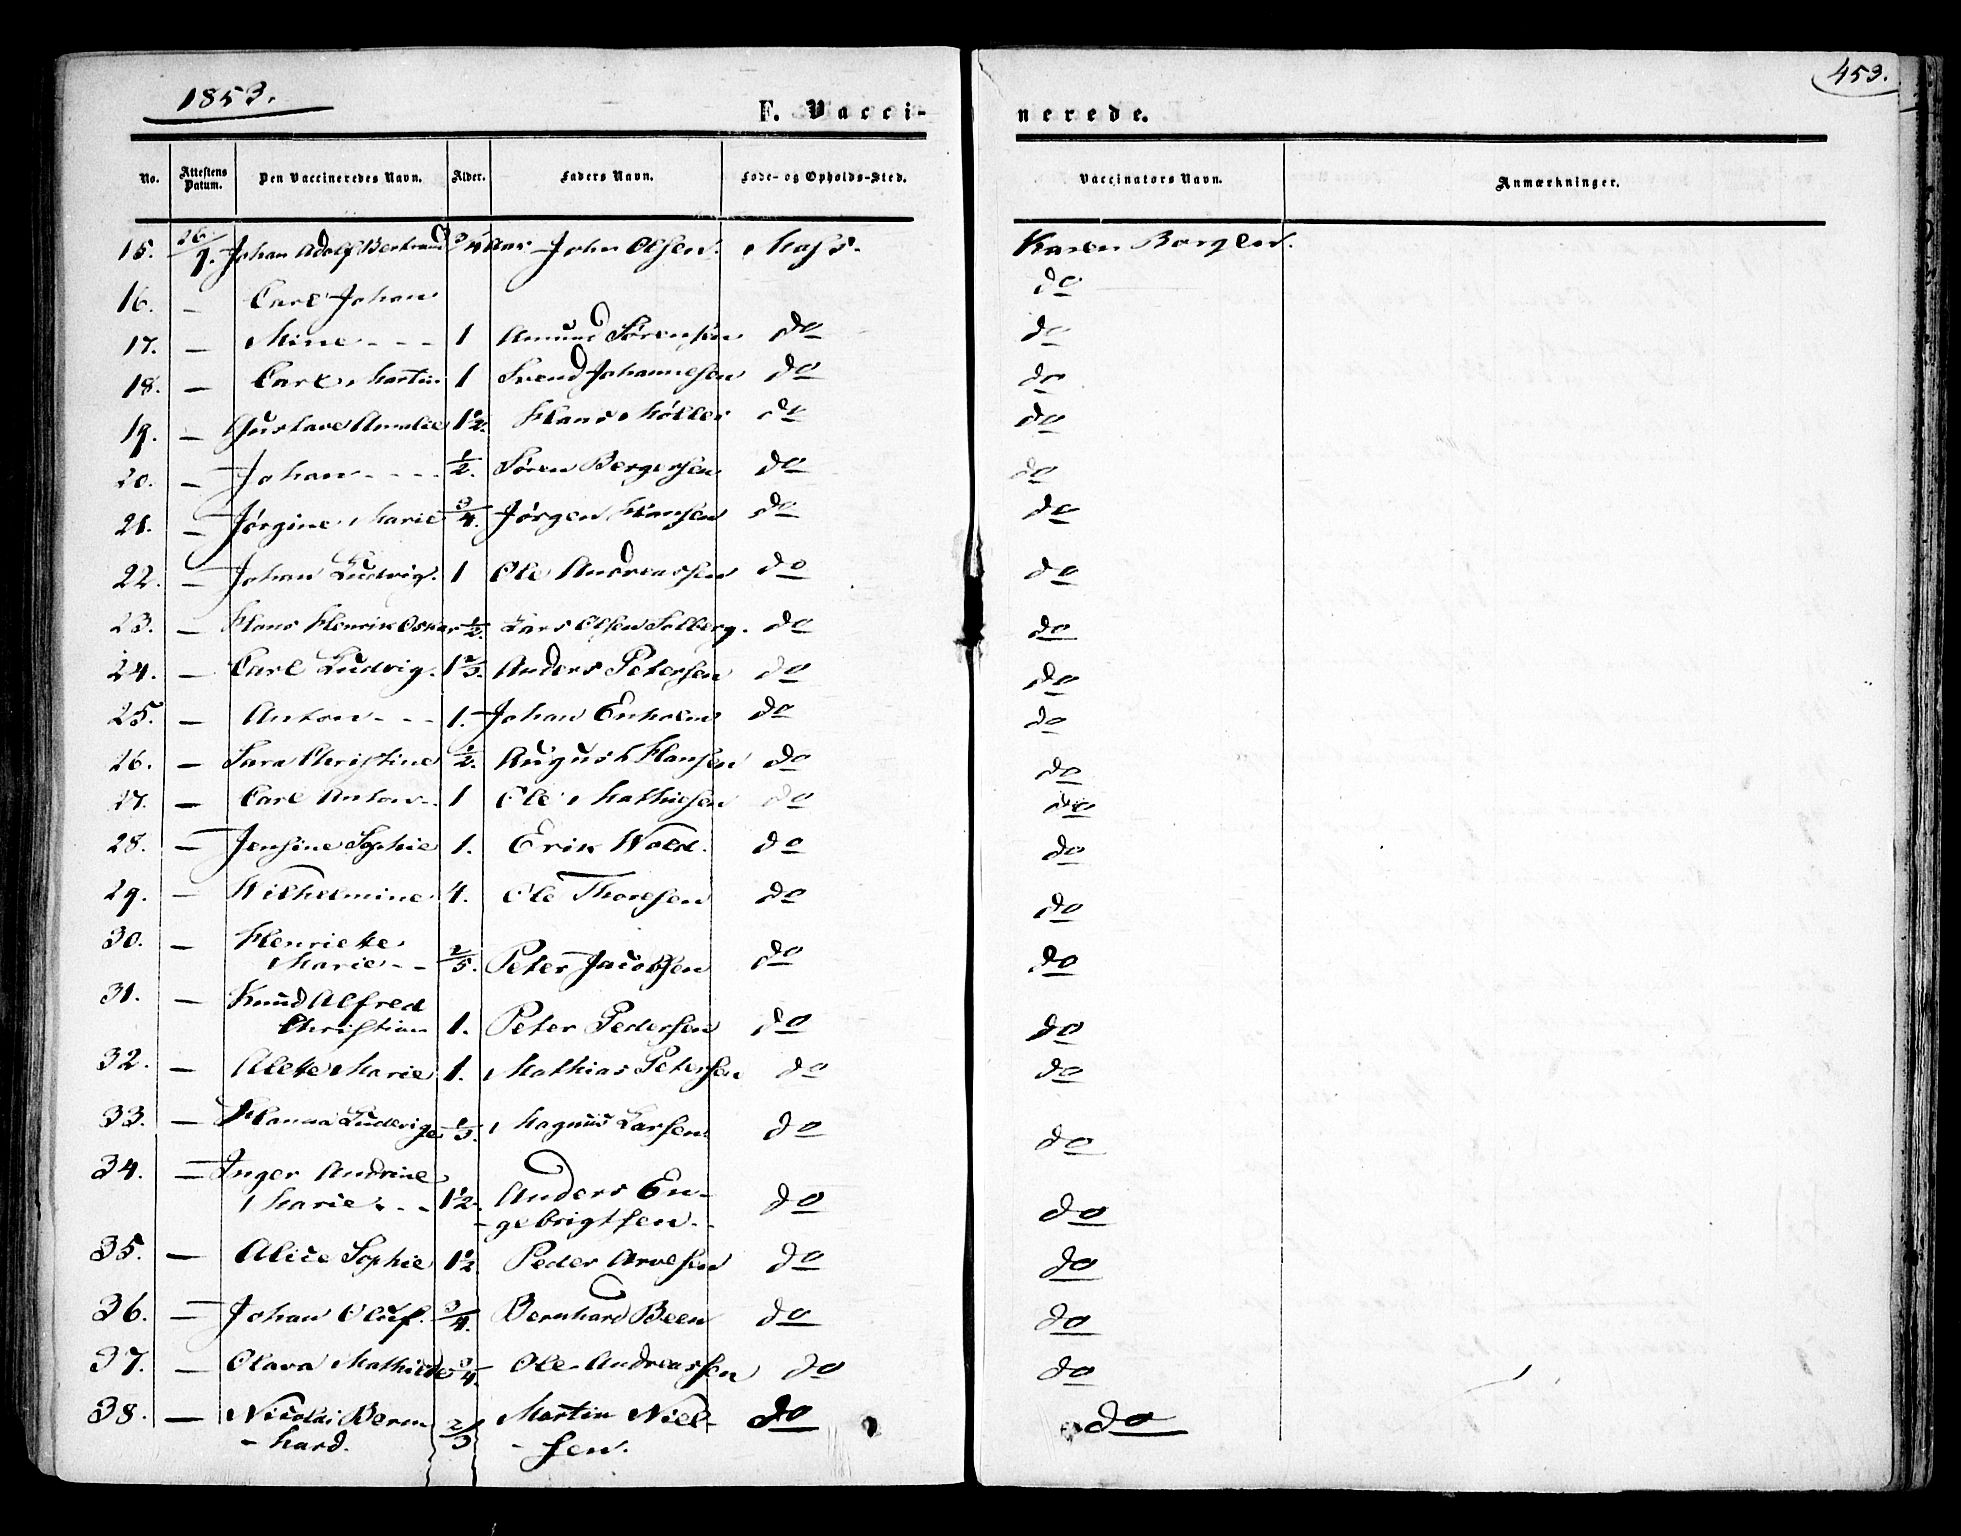 1853.
453.
F. Vacci-nerede.
No. Attestens Datum. Den Vaccineredes Navn. Alder. Faders Navn. Føde- og Opholds-Sted. Vaccinators Navn. Anmærkninger.
15. 26/9. Johan Adolf Bertrand 3/4 Aar John Olsen. Moss. Karen Borgen.
16. — Carl Johan do
17. — Mine - - - 1 Amund Sørensen do do
18. — Carl Martin 1 Svend Johannesen do do
19. — Gustave Amalie 1 1/2. Hans Møller do do
20. — Johan - - - - 1/2. Søren Bergersen do do
21. — Jørgine Marie 3/4. Jørgen Hansen do do
22. — Johan Ludvig. 1 Ole Andreassen do do
23. — Hans Henrik Oskar 1/2. Lars Olsen Solberg. do do
24. — Carl Ludvig. 1 2/3. Anders Petersen do do
25. — Anton - - - 1. Johan Enholm do do
26. — Sara Christine 1/2. August Hansen do do
27. — Carl Anton - 1 Ole Mathiesen do do
28. — Jensine Sophie 1. Erik Wold. do do
29. — Wilhelmine 4. Ole Thoresen do do
30. — Henriette
Marie - - 2/5. Peter Jacobsen do do
31. — Knud Alfred
Christian 1. Peter Pedersen do do
32. — Alette Marie 1. Mathias Petersen do do
33. — Hanna Ludvige 1/3. Magnus Larsen do do
34. — Inger Andrine
Marie - - 1 1/2. Anders En-
-gebrigtsen - - do do
35. — Alice Sophie 1 1/2. Peder Arvesen do do
36. — Johan Oluf. 3/4. Bernhard Been do do
37. — Olava Mathilde 3/4. Ole Andreassen do do
38. — Nicolai Bern-
-hard. 2/3 Martin Niel-
-sen. do do